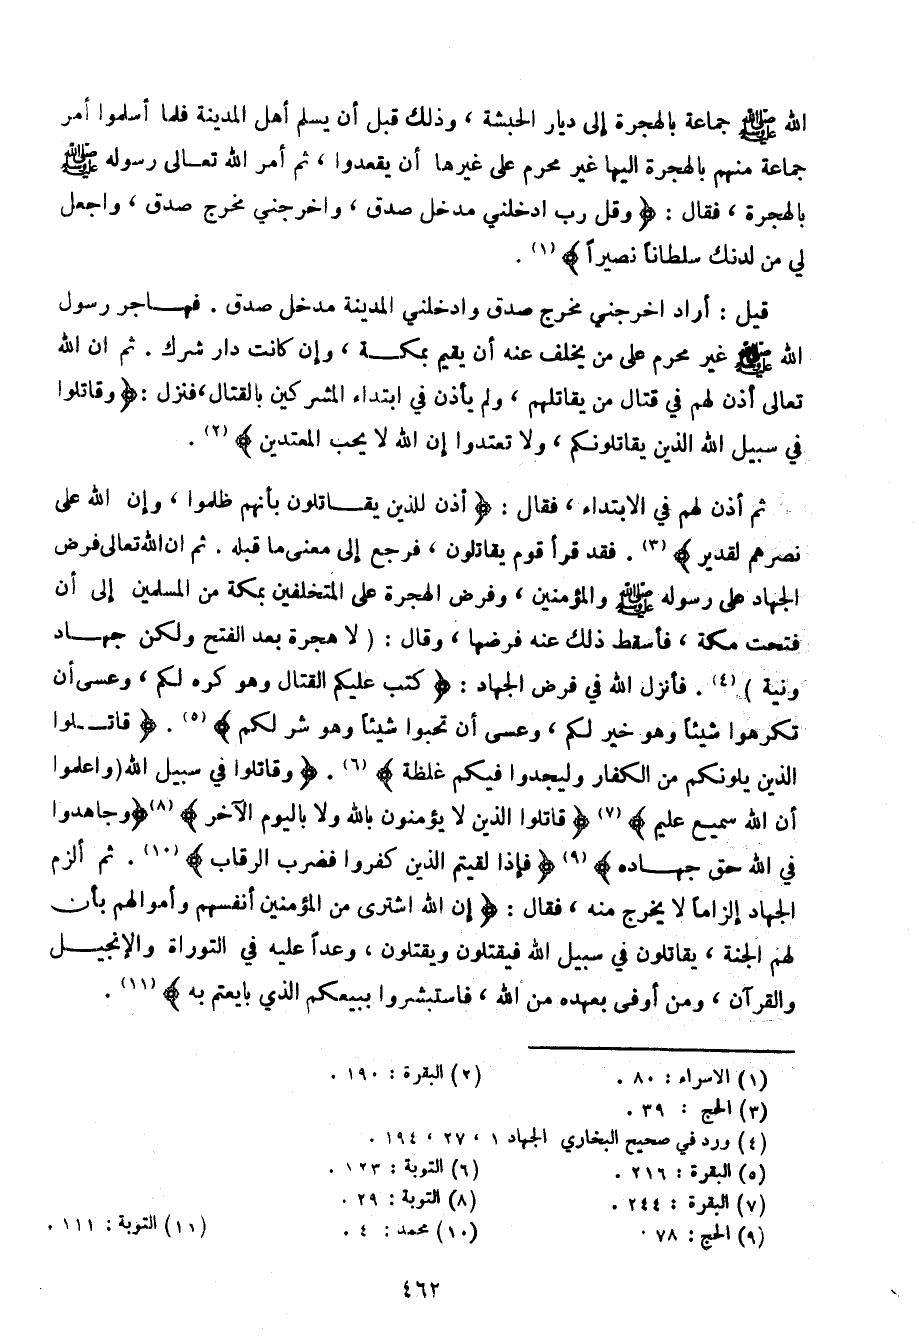 الله ﷺ جماعة بالهجرة إلى ديار الحبشة ، وذلك قبل أن يسلم أهل المدينة فلما أسلموا أمر
جماعة منهم بالهجرة اليها غير محرم على غيرها أن يقعدوا ، ثم أمر الله تعالى رسوله ﷺ
بالهجرة ، فقال : ﴿ وقل رب ادخلني مدخل صدق ، واخرجني مخرج صدق ، واجعل
لي من لدنك سلطاناً نصيراً ﴾ (١) .
قيل : أراد اخرجني مخرج صدق وادخلني المدينة مدخل صدق . فهاجر رسول
الله ﷺ غير محرم على من يخلف عنه أن يقيم بمكة ، وإن كانت دار شرك . ثم ان الله
تعالى أذن لهم في قتال من يقاتلهم ، ولم يأذن في ابتداء المشركين بالقتال، فنزل : ﴿ وقاتلوا
في سبيل الله الذين يقاتلونكم ، ولا تعتدوا إن الله لا يحب المعتدين ﴾ (٢) .
ثم أذن لهم في الابتداء ، فقال : ﴿ أذن للذين يقاتلون بأنهم ظلموا ، وإن الله على
نصرهم لقدير ﴾ (٣) . فقد قرأ قوم يقاتلون ، فرجع إلى معنى ما قبله . ثم ان الله تعالى فرض
الجهاد على رسوله ﷺ والمؤمنين ، وفرض الهجرة على المتخلفين بمكة من المسلمين إلى أن
فتحت مكة ، فأسقط ذلك عنه فرضها ، وقال : ( لا هجرة بعد الفتح ولكن جهاد
ونية ) (٤) . فأنزل الله في فرض الجهاد : ﴿ كتب عليكم القتال وهو كره لكم ، وعسى أن
تكرهوا شيئاً وهو خير لكم ، وعسى أن تحبوا شيئاً وهو شر لكم ﴾ (٥) . ﴿ قاتلوا
الذين يلونكم من الكفار وليجدوا فيكم غلظة ﴾ (٦) . ﴿ وقاتلوا في سبيل الله (واعلموا
أن الله سميع عليم ﴾ (٧) ﴿ قاتلوا الذين لا يؤمنون بالله ولا باليوم الآخر ﴾ (٨) ﴿ وجاهدوا
في الله حق جهاده ﴾ (٩) ﴿ فإذا لقيتم الذين كفروا فضرب الرقاب ﴾ (١٠) . ثم ألزم
الجهاد إلزاماً لا يخرج منه ، فقال : ﴿ إن الله اشترى من المؤمنين أنفسهم وأموالهم بأن
لهم الجنة ، يقاتلون في سبيل الله فيقتلون ويقتلون ، وعداً عليه في التوراة والإنجيل
والقرآن ، ومن أوفى بعهده من الله ، فاستبشروا ببيعكم الذي بايعتم به ﴾ (١١) .
(١) الاسراء : ٨٠ . (٢) البقرة : ١٩٠ .
(٣) الحج : ٣٩ .
(٤) ورد في صحيح البخاري الجهاد ١ ، ٢٧ ، ١٩٤ .
(٥) البقرة : ٢١٦ . (٦) التوبة : ١٢٣ .
(٧) البقرة : ٢٤٤ . (٨) التوبة : ٢٩ .
(٩) الحج : ٧٨ . (١٠) محمد : ٤ . (١١) التوبة : ١١١ .
٤٦٢